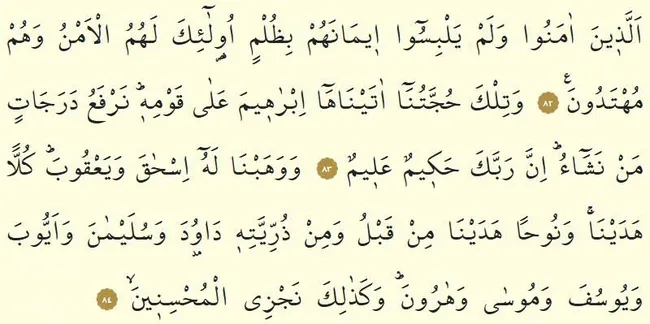 اَلَّذ۪ينَ اٰمَنُوا وَلَمْ يَلْبِسُٓوا ا۪يمَانَهُمْ بِظُلْمٍ اُو۬لٰٓئِكَ لَهُمُ الْاَمْنُ وَهُمْ
مُهْتَدُونَ۟ ﴿٨٢﴾ وَتِلْكَ حُجَّتُنَٓا اٰتَيْنَاهَٓا اِبْرٰه۪يمَ عَلٰى قَوْمِه۪ۜ نَرْفَعُ دَرَجَاتٍ
مَنْ نَشَٓاءُۜ اِنَّ رَبَّكَ حَك۪يمٌ عَل۪يمٌ ﴿٨٣﴾ وَوَهَبْنَا لَهُٓ اِسْحٰقَ وَيَعْقُوبَۜ كُلًّا
هَدَيْنَاۚ وَنُوحًا هَدَيْنَا مِنْ قَبْلُ وَمِنْ ذُرِّيَّتِه۪ دَاوُ۫دَ وَسُلَيْمٰنَ وَاَيُّوبَ
وَيُوسُفَ وَمُوسٰى وَهٰرُونَۜ وَكَذٰلِكَ نَجْزِي الْمُحْسِن۪ينَۙ ﴿٨٤﴾